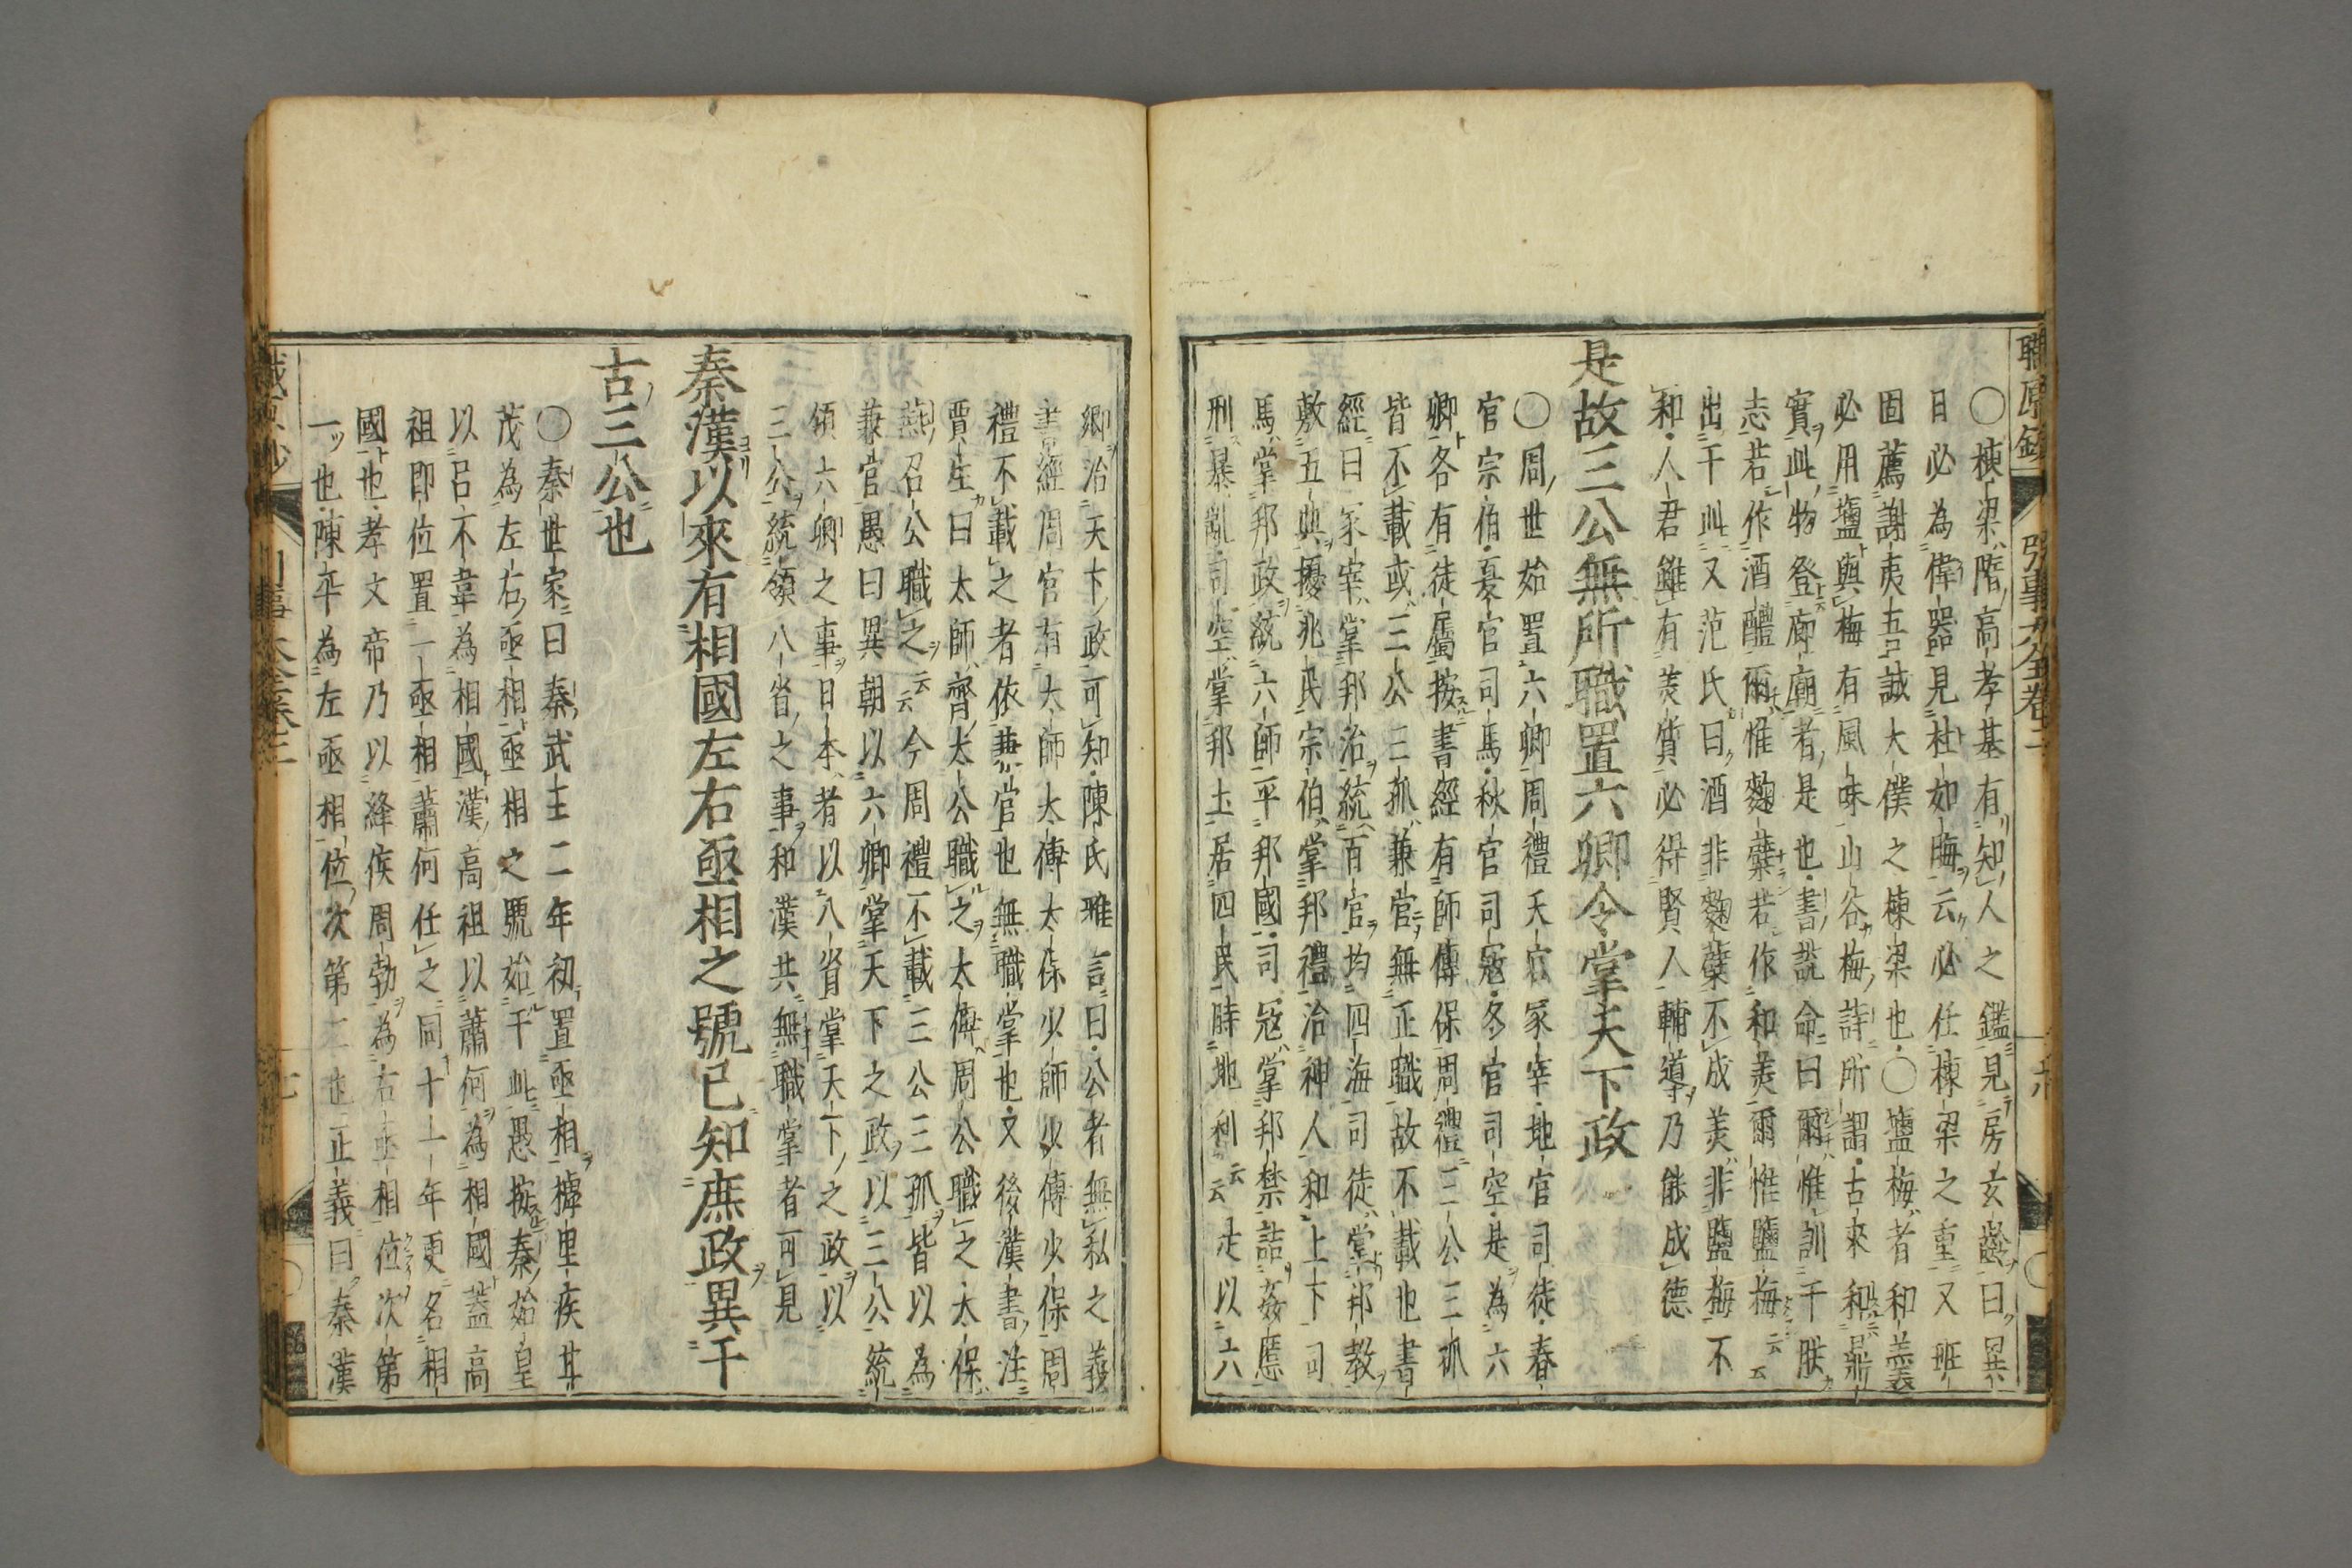 〇棟梁隋高孝基有知人之鑑見房玄齡曰異
日必為偉器見杜如晦云必任棟梁之重又班
固薦謝夷吾誠大僕之棟梁也〇鹽梅者和羹
必用鹽與梅有風味山谷梅詩所謂古來和鼎
實此物登廊廟者是也書說命曰爾惟訓于朕
志若作酒醴爾惟麴糵若作和羹爾惟鹽梅云云
出于此又范氏曰酒非麴糵不成羹非鹽梅不
和人君雖有美質必得賢人輔導乃能成德
是故三公無所職置六卿令掌天下政
〇周世始置六卿周禮天官冢宰地官司徒春
官宗伯夏官司馬秋官司寇冬官司空是為六
卿各有徒屬按書經有師傅保周禮三公三孤
皆不載或三公三孤兼官無正職故不載也書
經曰冢宰掌邦治統百官均四海司徒掌邦教
敷五典擾兆民宗伯掌邦禮治神人和上下司
馬掌邦政統六師平邦國司寇掌邦禁詰姦慝
刑暴亂司空掌邦土居四民時地利云云是以六
卿治天下政可知陳氏雅言曰公者無私之義
書經周官有太師太傅太保少師少傅少保周
禮不載之者依兼官也無職掌也又後漢書注
賈生曰太師齊太公職之太傅周公職之太保
燕召公職之云云今周禮不載三公三孤皆以為
兼官愚曰異朝以六卿掌天下之政以三公統
領六卿之事日本者以八省掌天下之政以
三公統領八省之事和漢共無職掌者可見
秦漢以來有相國左右丞相之號已知庶政異于
古三公也
〇秦世家曰秦武王二年初置丞相樗里疾甘
茂為左右丞相丞相之號始于此愚按秦始皇
以呂不韋為相國漢高祖以蕭何為相國蓋高
祖即位置一丞相蕭何任之同十一年更名相
國也孝文帝乃以絳侯周勃為右丞相位次第
一也陳平為左丞相位次第二也正義曰秦漢